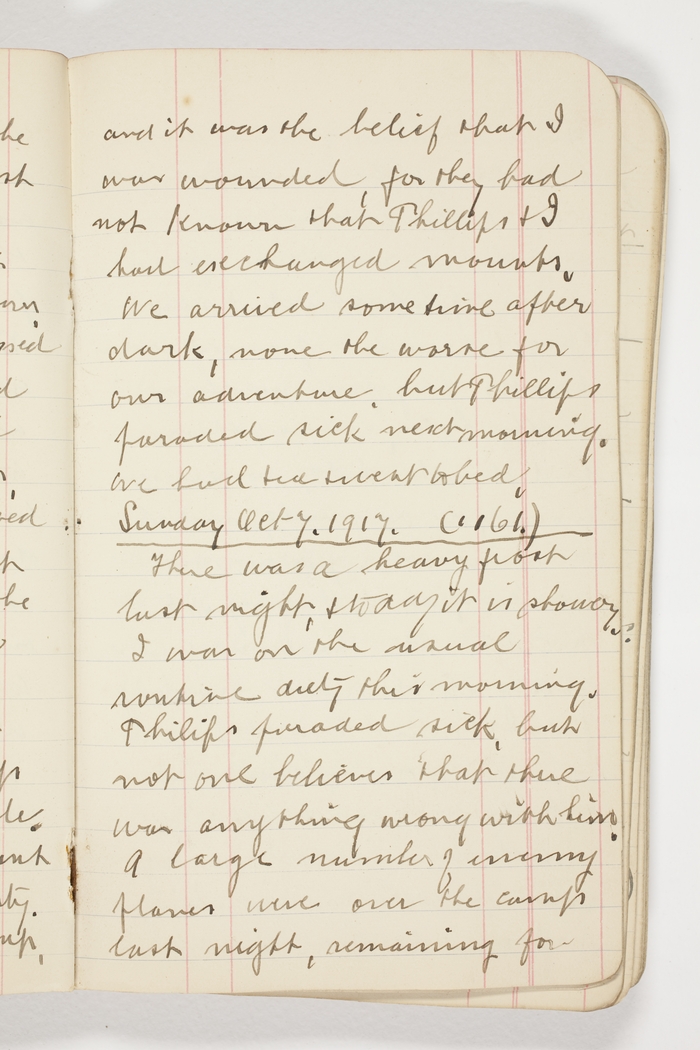 and it was the belief that I
was wounded, for they had
not known that Phillips & I
had exechanged mounts.
We arrived sometime after
dark, none the worse for
our adventure, but Phillips
paraded sick next morning.
We had tea & went to bed,
Sunday Oct 7. 1917. (1161.)
There was a heavy frost
last night, & today it is showery.
I was on the usual
routine duty this morning.
Philips paraded sick, but
not one believes that there
was anything wrong with him.
A large number of enemy
planes were over the camps
last night, remaining for
he
st
ssed
d
he
ps
le.
ty.
up,